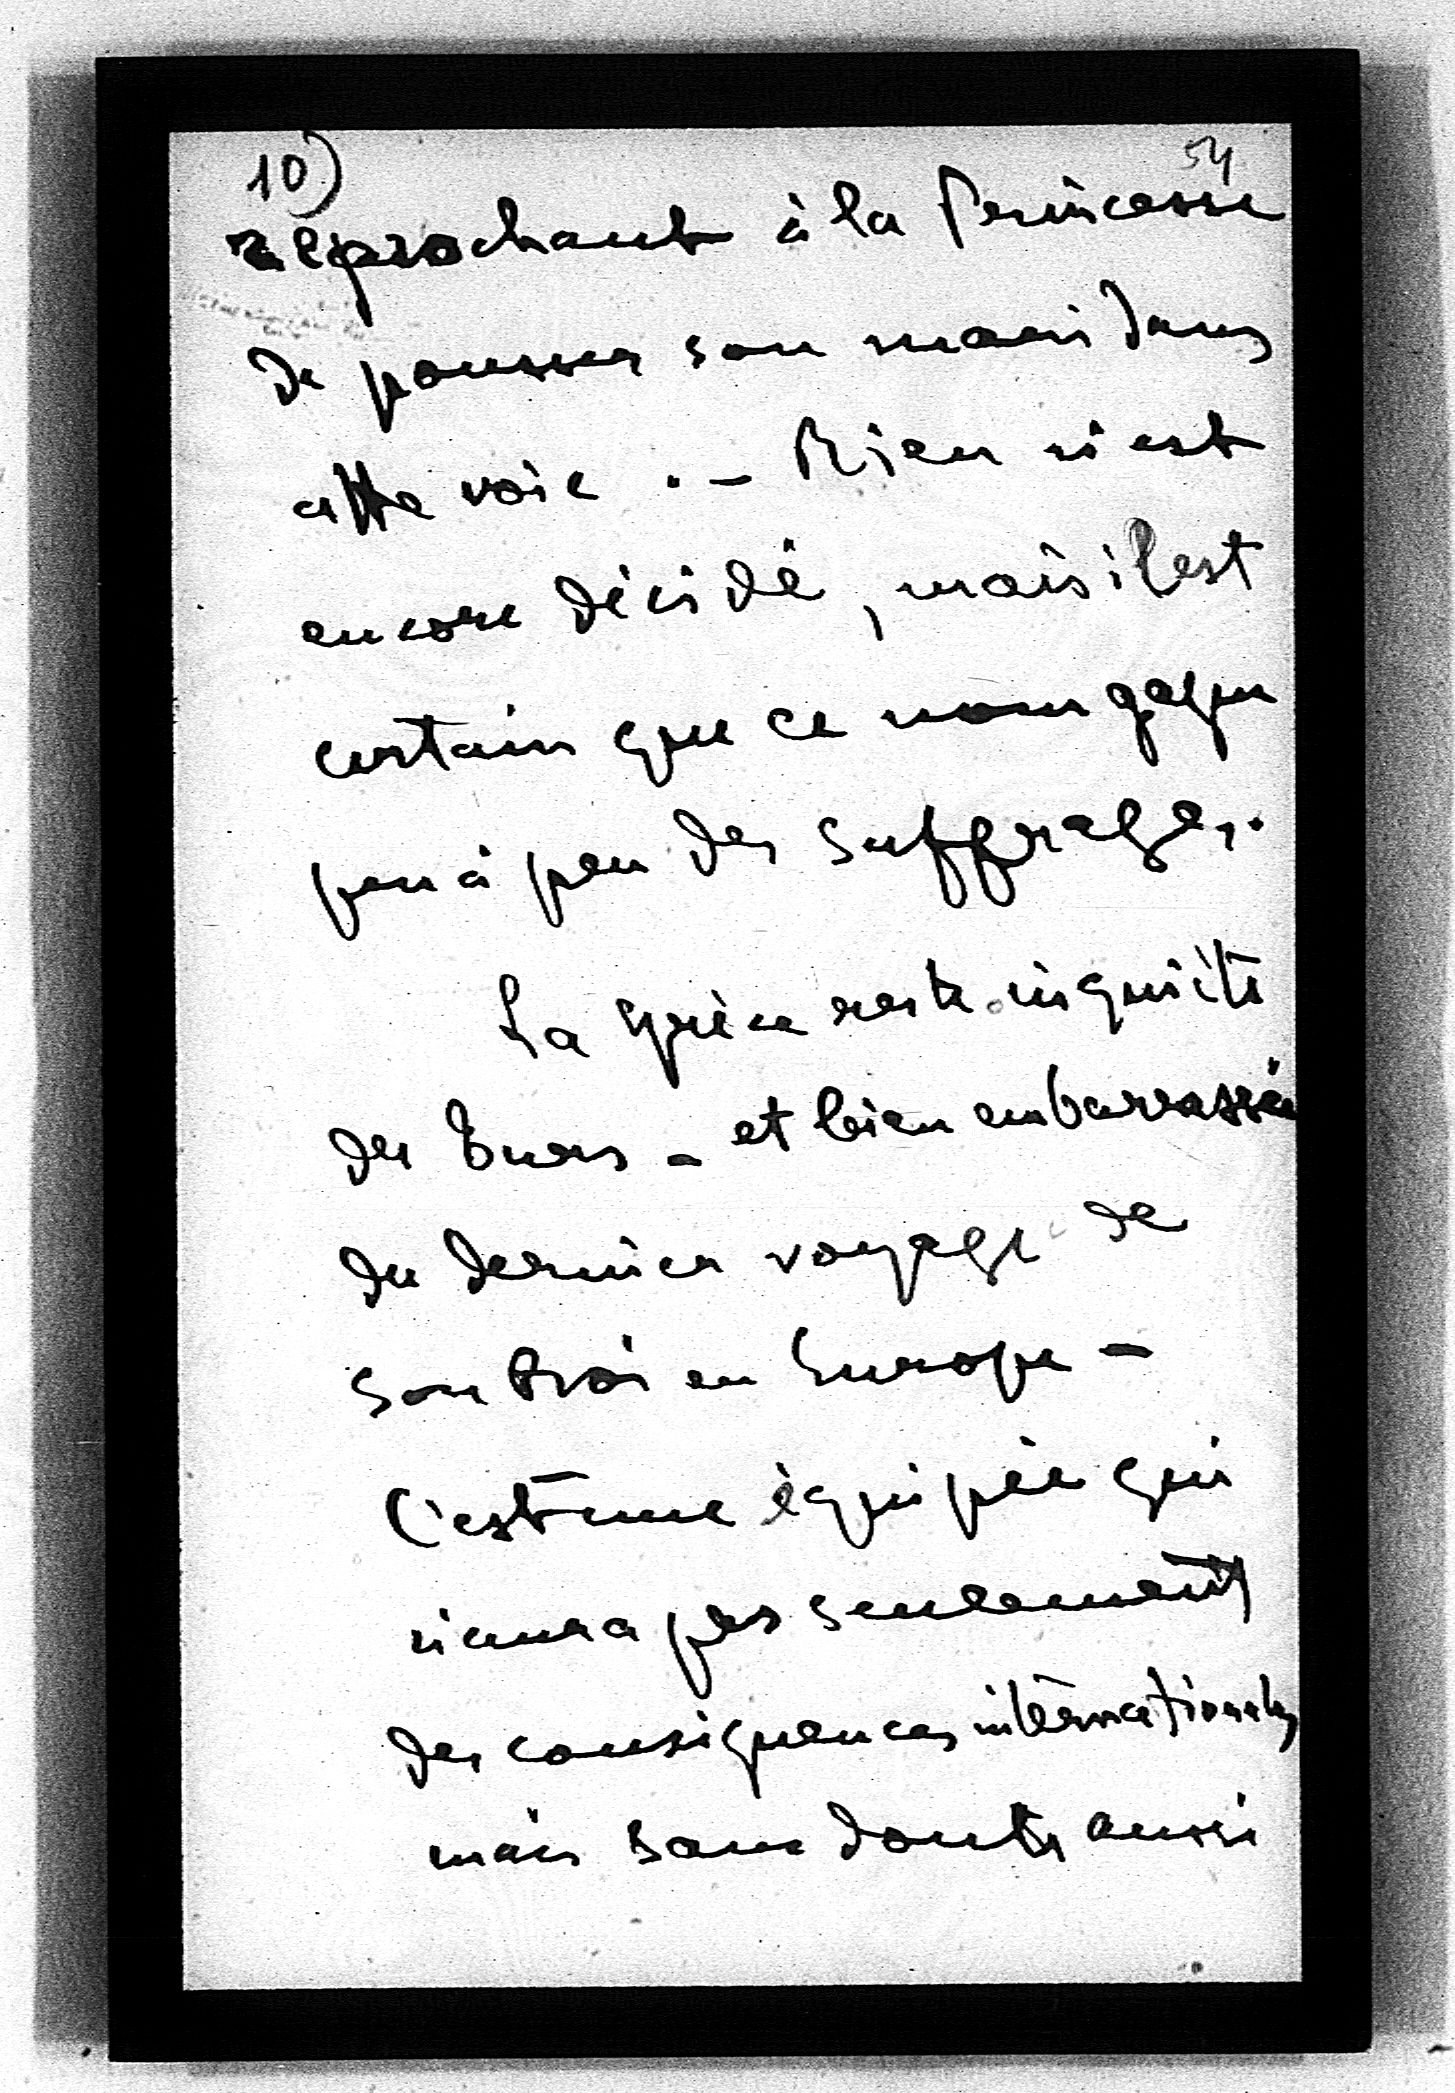 10)
54
reprochant à la Princesse
de pousser son mari dans
cette voie. – Rien n'est
encore décidé, mais il est
certain que ce nom gagne
peu à peu des suffrages.
La Grèce reste inquiète
des Turcs – et bien embarrassée
du dernier voyage de
son Roi en Europe –
C'est une équipée qui
n'aura pas seulement
des conséquences internationales
mais sans doute aussi